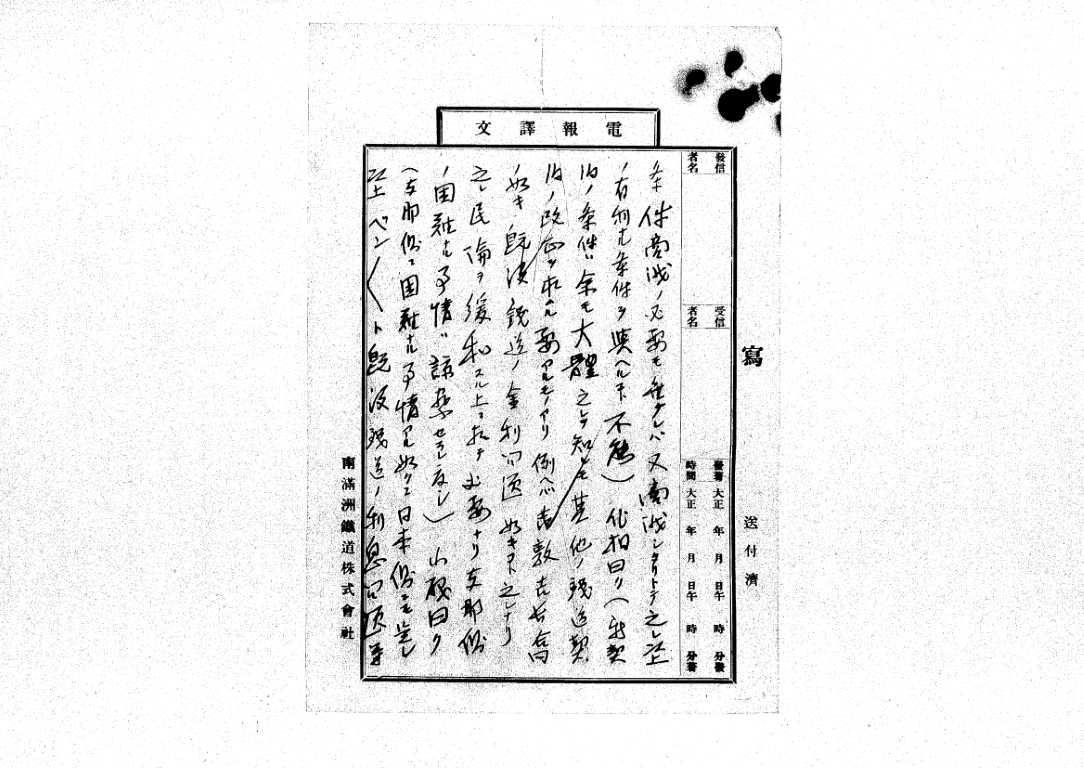 電報譯文
寫
送付濟
發信者名
受信者名
發著時間 大正 年 月 日午 時 分發
大正 年 月 日午 時 分著
条件商議ノ必要モ無クレバ又商議シタリトテ之レ以上
ノ有利ナル条件ヲ與ヘルコト不能)代拍曰ク(新契
約ノ条件ハ余モ大體之レヲ知ルモ其他ノ鐵道契
約ノ改正ヲ求ムル要アルモノアリ例ヘバ吉敦吉長合同
ノ如キ既決鐵道ノ金利問題ノ如キコト之レナリ
之レ民論ヲ緩和スル上ニ於テ必要ナリ支那側
ノ困難ナル事情ハ諒察セラレ度シ)小磯曰ク
(支那側ニ困難ナル事情アル如クニ日本側ニモ
以上ベン〱ト既設鐵道ノ利息問題等
南滿洲鐵道株式會社